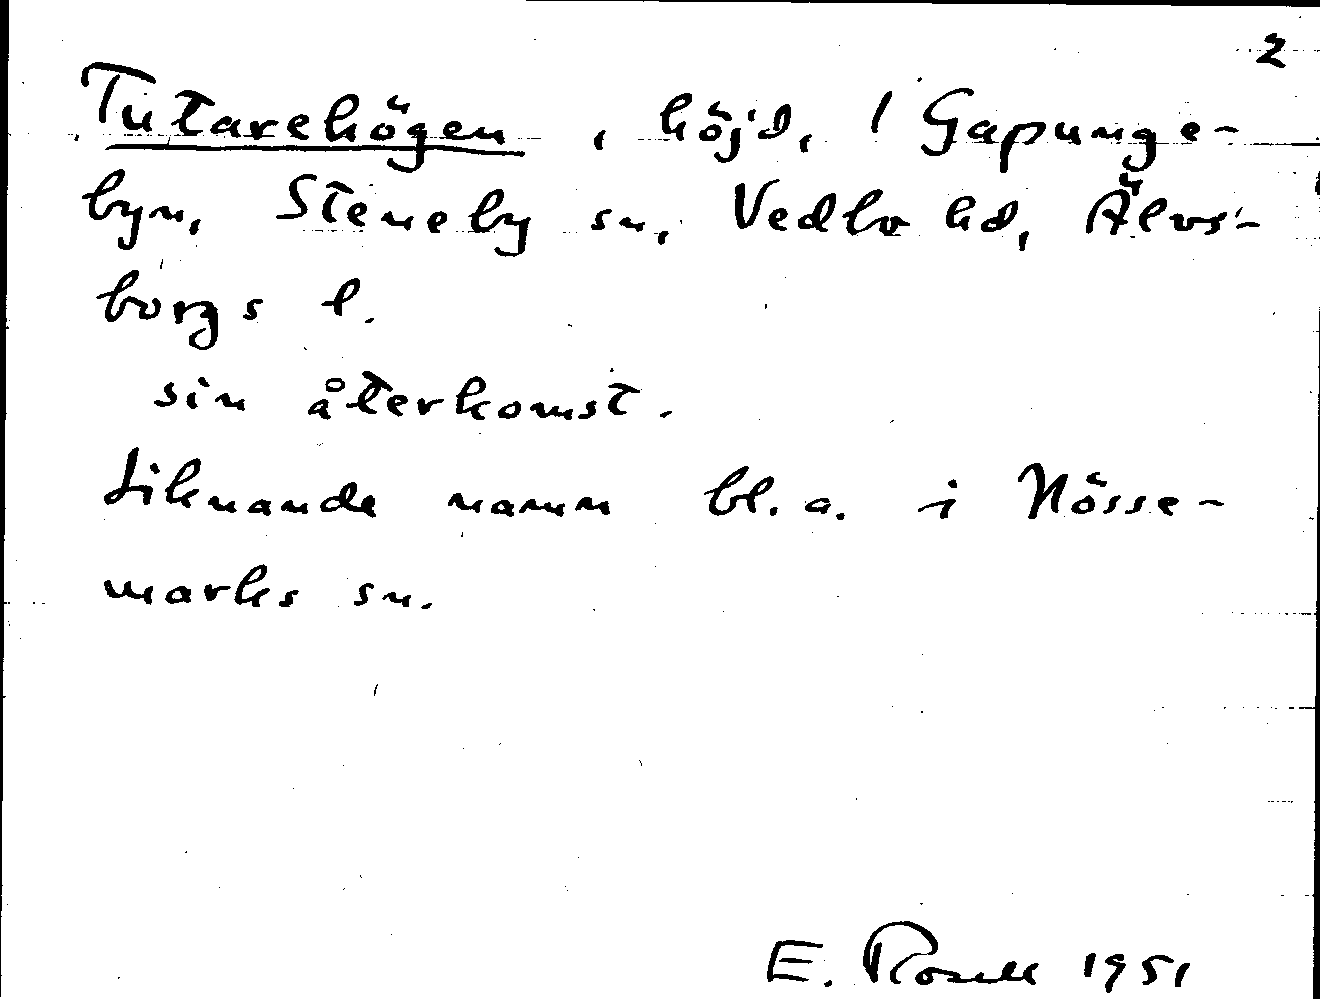 2
Tutarehögen, höjd, / Gapunge-
byn, Steneby sn, Vedbo hd, Älvs-
borgs l.
sin återkomst.
Liknande namn bl. a. i Nösse-
marks sn.
E. Rosell 1951